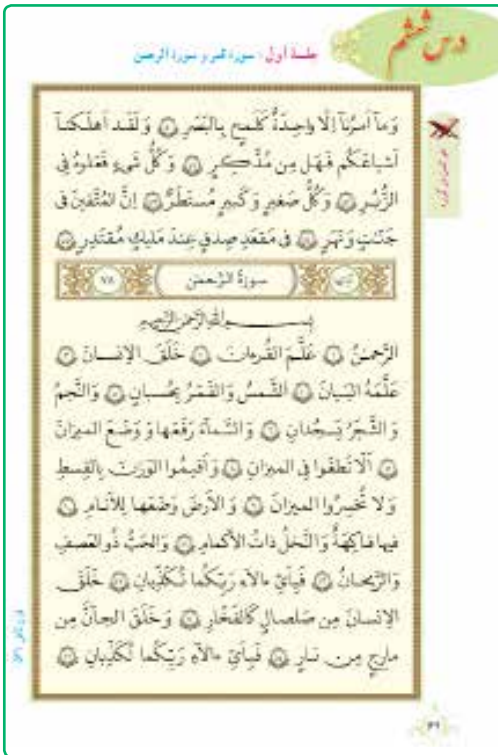 درس ششم
جلسهٔ اول : سورهٔ قمر و سورهٔ الرحمن
وَما أَمرُنا إِلّا واحِدَةٌ كَلَمحٍ بِالبَصَرِ ۝ وَلَقَد أَهلَكنا
أَشياعَكُم فَهَل مِن مُدَّكِرٍ ۝ وَكُلُّ شَيءٍ فَعَلوهُ فِي
الزُّبُرِ ۝ وَكُلُّ صَغيرٍ وَكَبيرٍ مُستَطَرٌ ۝ إِنَّ المُتَّقينَ في
جَنّاتٍ وَنَهَرٍ ۝ في مَقعَدِ صِدقٍ عِندَ مَليكٍ مُقتَدِرٍ ۝
سورَةُ الرَّحمن ٧٨
بِسمِ اللهِ الرَّحمنِ الرَّحيمِ
الرَّحمنُ ۝ عَلَّمَ القُرءانَ ۝ خَلَقَ الإِنسانَ ۝
عَلَّمَهُ البَيانَ ۝ الشَّمسُ وَالقَمَرُ بِحُسبانٍ ۝ وَالنَّجمُ
وَالشَّجَرُ يَسجُدانِ ۝ وَالسَّماءَ رَفَعَها وَوَضَعَ الميزانَ
۝ أَلّا تَطغَوا فِي الميزانِ ۝ وَأَقيمُوا الوَزنَ بِالقِسطِ
وَلا تُخسِرُوا الميزانَ ۝ وَالأَرضَ وَضَعَها لِلأَنامِ ۝
فيها فاكِهَةٌ وَالنَّخلُ ذاتُ الأَكمامِ ۝ وَالحَبُّ ذُو العَصفِ
وَالرَّيحانُ ۝ فَبِأَيِّ ءالاءِ رَبِّكُما تُكَذِّبانِ ۝ خَلَقَ
الإِنسانَ مِن صَلصالٍ كَالفَخّارِ ۝ وَخَلَقَ الجانَّ مِن
مارِجٍ مِن نارٍ ۝ فَبِأَيِّ ءالاءِ رَبِّكُما تُكَذِّبانِ ۝